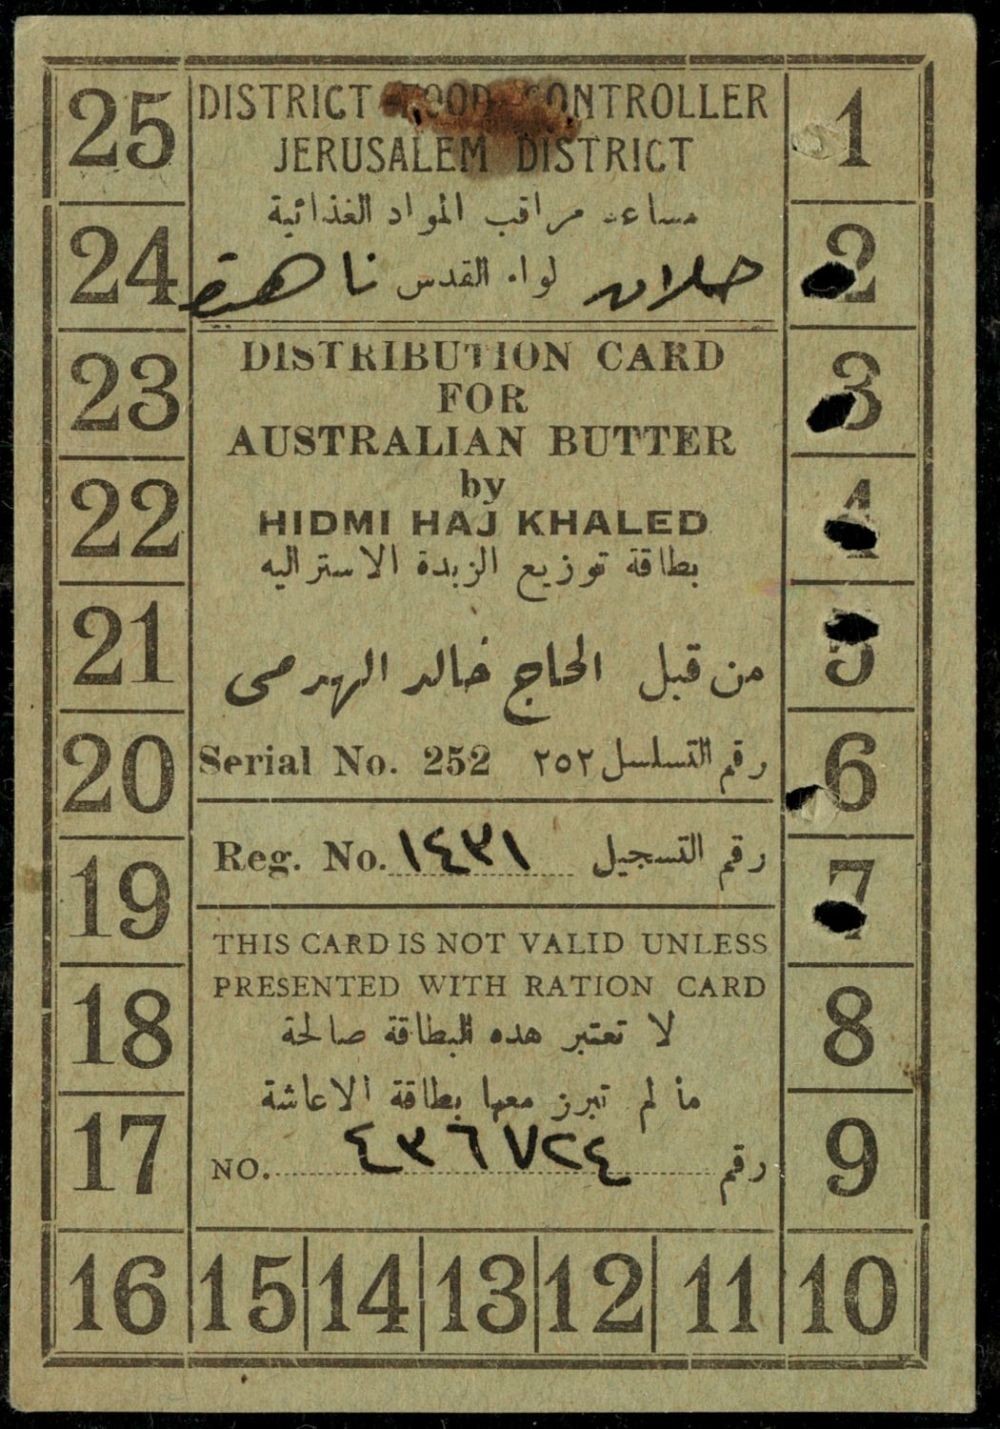 DISTRICT FOOD CONTROLLER
JERUSALEM DISTRICT
مساعد مراقب المواد الغذائية
لواء القدس
DISTRIBUTION CARD
FOR
AUSTRALIAN BUTTER
by
HIDMI HAJ KHALED
بطاقة توزيع الزبدة الاستراليه
من قبل الحاج خالد الهدمى
Serial No. 252 رقم التسلسل ٢٥٢
Reg. No. ١٤٣١ رقم التسجيل
THIS CARD IS NOT VALID UNLESS
PRESENTED WITH RATION CARD
لا تعتبر هذه البطاقة صالحة
ما لم تبرز معها بطاقة الاعاشة
NO. ٤٣٦٧٢٤ رقم
1
2
3
4
5
6
7
8
9
10
11
12
13
14
15
16
17
18
19
20
21
22
23
24
25